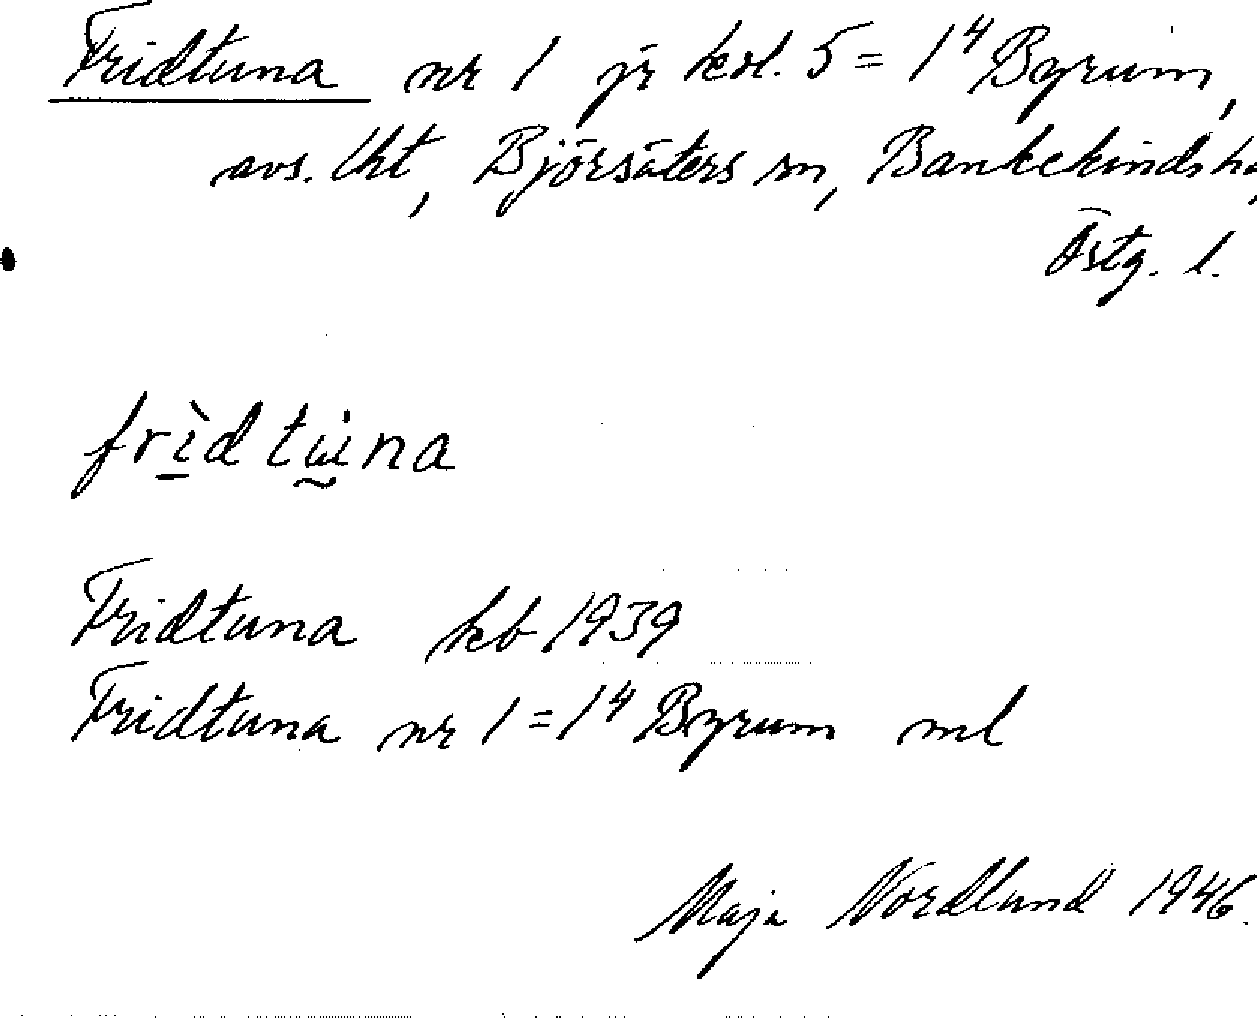 Fridtuna nr 1 jr kol. 5 = 1⁴ Byrum,
avs. lht, Björsäters sn, Bankekinds hd,
Östg. l.
frìdtu̇na
Fridtuna kb 1939
Fridtuna nr 1 = 1⁴ Byrum ml
Maja Nordlund 1946.